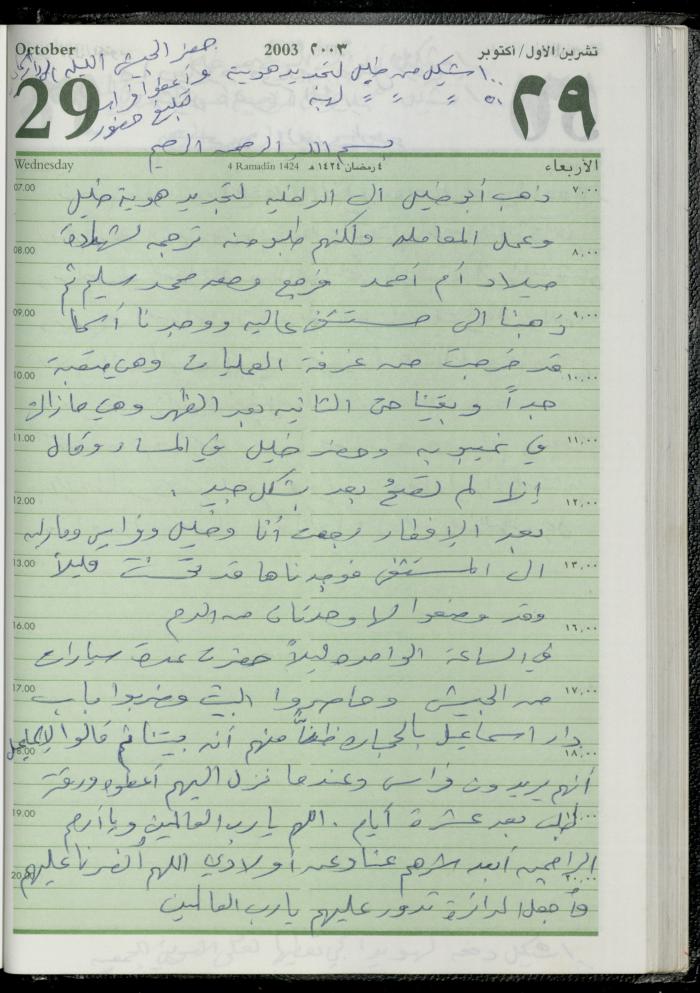 October
2003 ٢٠٠٣
تشرين الأول/ أكتوبر
حضر الجيش الليلة
١٠٠ شيكل من خليل لتجديد هوية وأعطوا فراس
٥٠ = = = لهبة تبليغ حضور
29
٢٩
بسم الله الرحمن الرحيم
Wednesday
4 Ramadān 1424 ٤ رمضان ١٤٢٤ هـ
الأربعاء
07.00 ذهب أبو خليل الى الداخلية لتجديد هوية خليل ٧,٠٠
08.00 وعمل المعاملة ولكنهم طلبو منه ترجمه لشهادة ٨,٠٠
ميلاد أم أحمد فرجع ومعه محمد سليم ثم
09.00 ذهبنا الى مستشفى عاليه ووجدنا أسما ٩,٠٠
10.00 قد خرجت من غرفة العمليات وهي متعبة ١٠,٠٠
جداً وبقينا حتى الثانيه بعد الظهر وهي مازالت
11.00 في غيبوبه وحضر خليل في المساء وقال ١١,٠٠
12.00 إنها لم تصحُ بعد بشكل جيد . ١٢,٠٠
بعد الإفطار رجعت أنا وخليل وفراس
13.00 الى المستشفى فوجدناها قد تحسنت قليلاً ١٣,٠٠
16.00 وقد وضعوا لها وحدتان من الدم ١٦,٠٠
في الساعة الواحده ليلاً حضرت عدة سيارات
17.00 من الجيش وحاصروا البيت وضربوا باب ١٧,٠٠
18.00 دار اسماعيل بالحجاره ظناً منهم أنه بيتنا ثم قالوا لإسماعيل ١٨,٠٠
أنهم يريدون فراس وعندما نزل اليهم أعطوه ورقة
19.00 لذلك بعد عشرة أيام . اللهم يا رب العالمين ويا أرحم
20.00 الراحمين أبعد شرهم عنا وعن أولادي اللهم أنصرنا عليهم
وأجعل الدائرة تدور عليهم يا رب العالمين